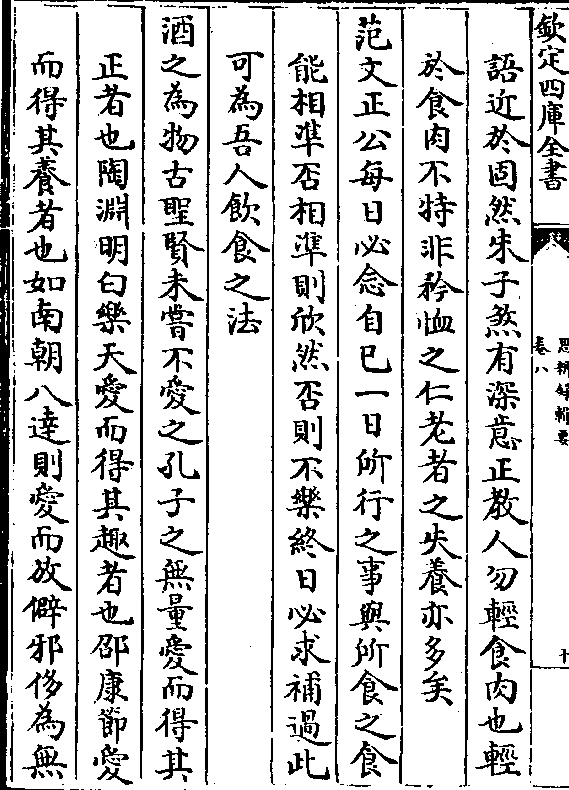 欽定四庫全書
思辨録輯要
卷八
十
語近於固然朱子煞有深意正教人勿輕食肉也輕
於食肉不特非矜恤之仁老者之失養亦多矣
范文正公每日必念自己一日所行之事與所食之食
能相準否相準則欣然否則不樂終日必求補過此
可為吾人飲食之法
酒之為物古聖賢未嘗不愛之孔子之無量愛而得其
正者也陶淵明白樂天愛而得其趣者也邵康節愛
而得其養者也如南朝八達則愛而放僻邪侈為無